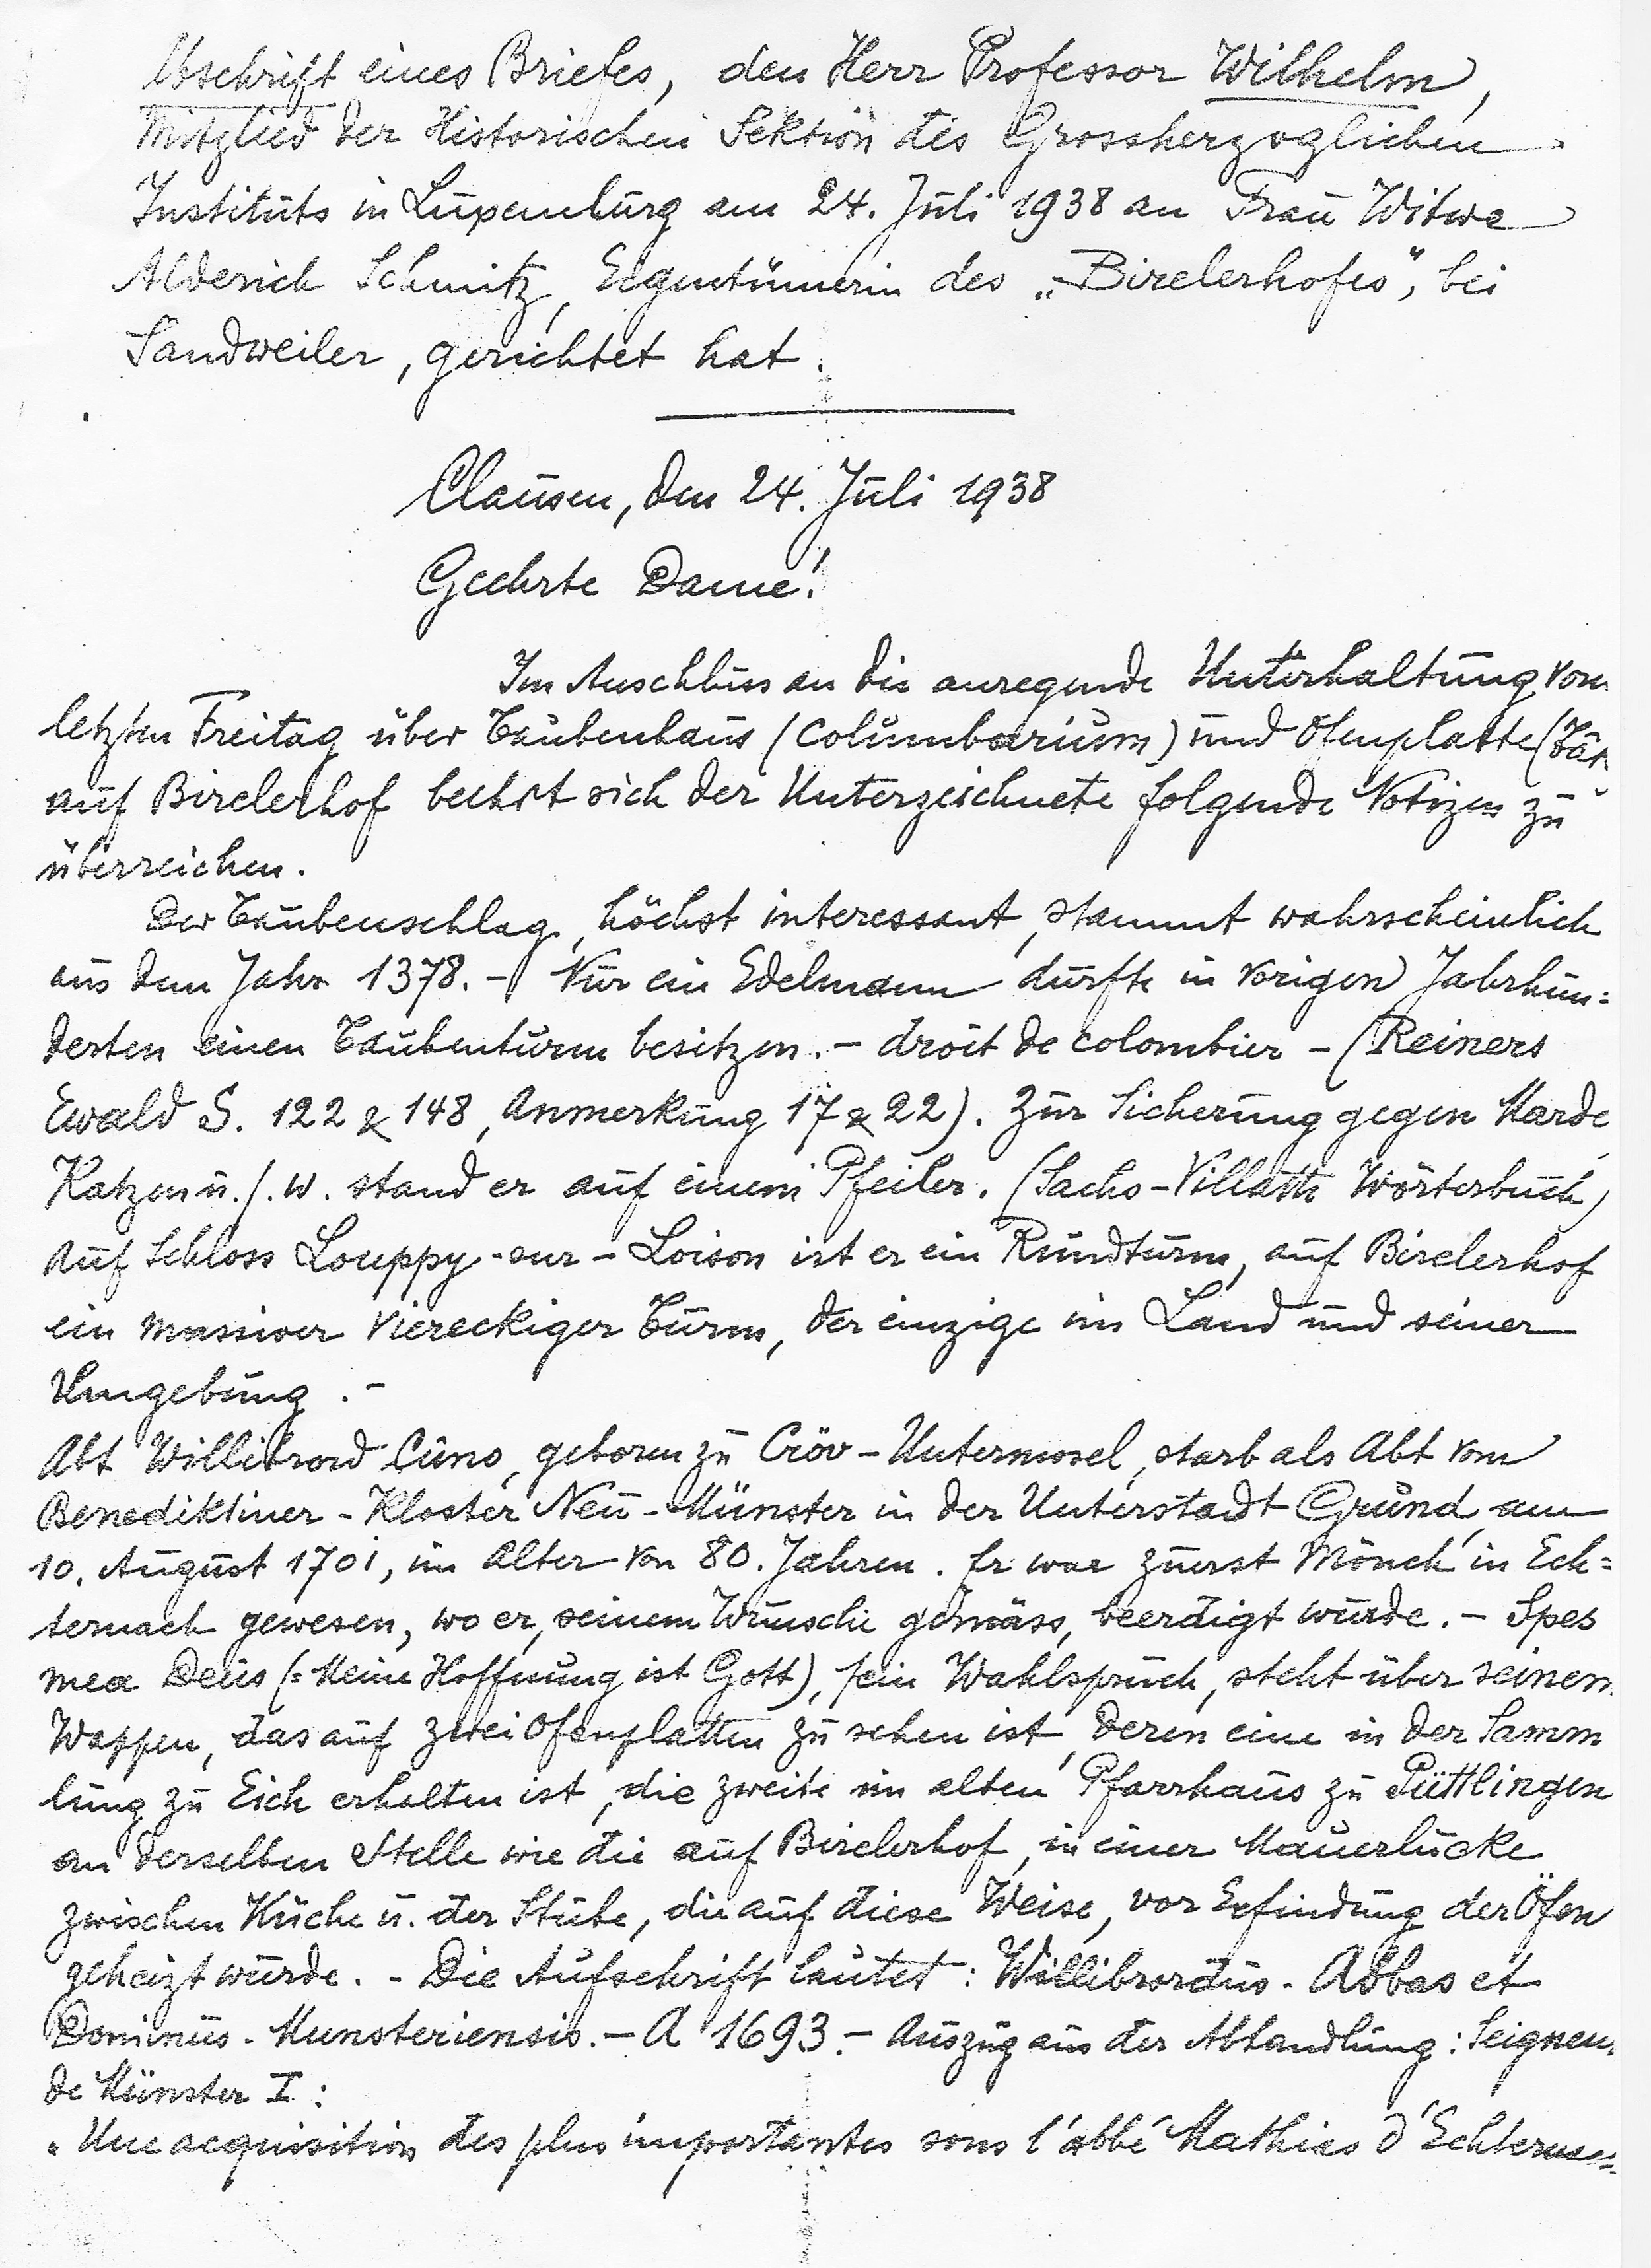 Abschrift eines Briefes, den Herr Professor Wilhelm,
Mitglied der Historischen Sektion des Grossherzoglichen
Instituts in Luxemburg am 24. Juli 1938 an Frau Witwe
Alderich Schmitz, Eigentümerin des „Birelerhofes", bei
Sandweiler, gerichtet hat.
Clausen, den 24. Juli 1938
Geehrte Dame!
Im Anschluss an die anregende Unterhaltung vom
letzten Freitag über Taubenhaus (Columbarium) und Ofenplatte (
auf Birelerhof beehrt sich der Unterzeichnete folgende Notizen zu
überreichen.
Der Taubenschlag, höchst interessant, stammt wahrscheinlich
aus dem Jahr 1378. - Nur ein Edelmann durfte in vorigen Jahrhun=
derten einen Taubenturm besitzen. - droit de colombier - (Reiners
Ewald S. 122 & 148, Anmerkung 17 & 22). Zur Sicherung gegen Marde
Katzen u.s.w. stand er auf einem Pfeiler. (Sachs-Villatte Wörterbuch)
Auf Schloss Louppy-sur-Loison ist er ein Rundturm, auf Birelerhof
ein massiver viereckiger Turm, der einzige im Land und seiner
Umgebung. -
Abt Willibrord Cuno, geboren zu Cröv-Untermosel, starb als Abt vom
Benediktiner-Kloster Neu-Münster in der Unterstadt Grund, am
10. August 1701, im Alter von 80. Jahren. Er war zuerst Mönch in Ech=
ternach gewesen, wo er, seinem Wunsche gemäss, beerdigt wurde. - Spes
mea Deus (= Meine Hoffnung ist Gott), sein Wahlspruch, steht über seinem
Wappen, das auf zwei Ofenplatten zu sehen ist, deren eine in der Samm
lung zu Eich erhalten ist, die zweite im alten Pfarrhaus zu Püttlingen
an derselben Stelle wie die auf Birelerhof, in einer Mauerlücke
zwischen Küche u. der Stube, die auf diese Weise, vor Erfindung der Öfen
geheizt wurde. - Die Aufschrift lautet: Willibrordus - Abbas et
Dominus - Munsteriensis. - A 1693. - Auszug aus der Abhandlung: Seigneu
de Münster I:
„Une acquisition des plus importantes sous l'abbé Mathias d'Echterna